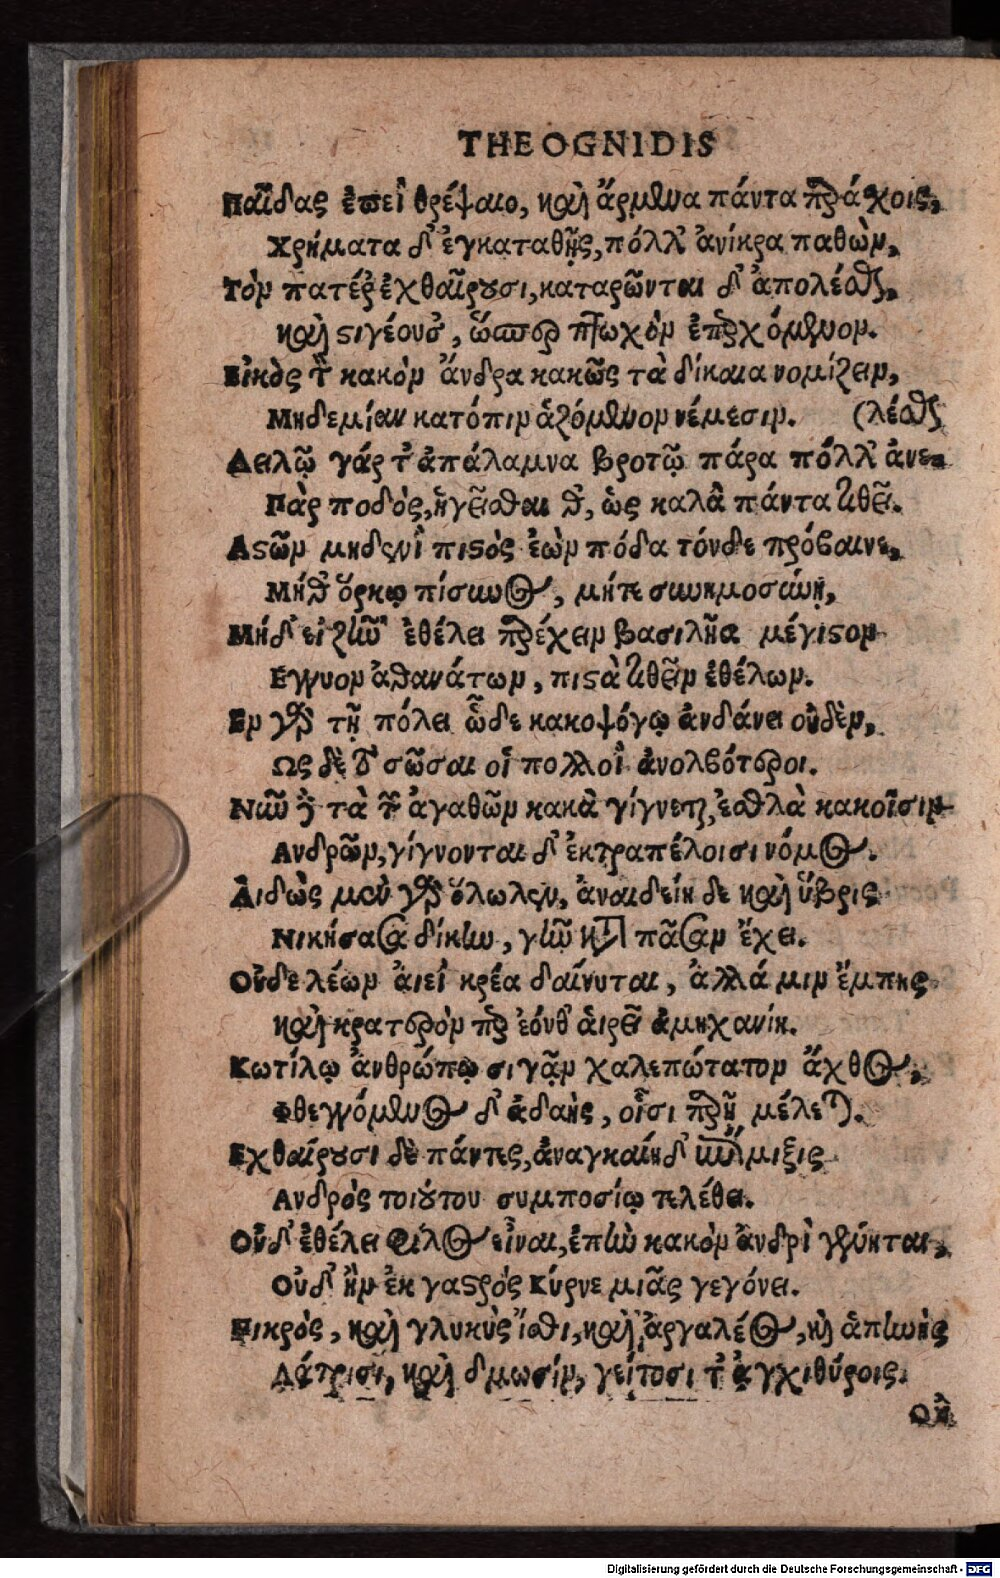 THEOGNIDIS
Παῖδας ἐπεὶ θρέψαιο, καὶ ἄρμενα πάντα παράσχοις,
Χρήματα δ' ἐγκαταθῇς, πόλλ' ἀνίηρα παθὼν,
Τὸν πατέρ' ἐχθαίρουσι, καταρῶνται δ' ἀπολέσθαι,
καὶ στυγέουσ', ὥσπερ πτωχὸν ἐπερχόμενον.
Εἰκὸς τ' κακὸν ἄνδρα κακῶς τὰ δίκαια νομίζειν,
Μηδεμίαν κατόπιν ἁζόμενον νέμεσιν. (λέσθαι
Δειλῷ γάρ τ' ἀπάλαμνα βροτῷ πάρα πόλλ' ἀνε-
Πὰρ ποδὸς, ἡγεῖσθαι θ', ὡς καλὰ πάντα τιθεῖ.
Αστῶν μηδενὶ πιστὸς ἐὼν πόδα τόνδε πρόβαινε,
Μήθ' ὅρκῳ πίσυνος, μήτε συνημοσύνῃ,
Μήδ' εἰ Ζῆν' ἐθέλει παρέχειν βασιλῆα μέγιστον
Εγγυον ἀθανάτων, πιστὰ τιθεῖν ἐθέλων.
Εν γὰρ τῇ πόλει ὧδε κακοψόγῳ ἀνδάνει οὐδὲν,
Ως δὲ τὸ σῶσαι οἱ πολλοὶ ἀνολβότεροι.
Νῦν δὲ τὰ τῶν ἀγαθῶν κακὰ γίγνεται, ἐσθλὰ κακοῖσιν
Ανδρῶν, γίγνονται δ' ἐκτραπέλοισι νόμος.
Αἰδὼς μὲν γὰρ ὄλωλεν, ἀναιδείη δε καὶ ὕβρις
Νικήσασα δίκην, γῆν κατὰ πᾶσαν ἔχει.
Οὐδε λέων ἀιεὶ κρέα δαίνυται, ἀλλά μιν ἔμπης
καὶ κρατερὸν περ ἐόνθ' ἁιρεῖ ἀμηχανίη.
Κωτίλῳ ἀνθρώπῳ σιγᾷν χαλεπώτατον ἄχθος,
Φθεγγόμενος δ' ἀδαὴς, οἷσι παρῇ μέλεται.
Εχθαίρουσι δὲ πάντες, ἀναγκαίη δ' ἐπίμιξις
Ανδρὸς τοιούτου συμποσίῳ τελέθει.
Οὐδ' ἐθέλει φίλος εἶναι, ἐπὴν κακὸν ἀνδρὶ γένηται,
Οὐδ' ἢν ἐκ γαστρὸς Κύρνε μιᾶς γεγόνει.
Πικρὸς, καὶ γλυκὺς ἴσθι, καὶ ἀργαλέος, καὶ ἀπηνὴς
Λάτρισι, καὶ δμωσίν, γείτοσι τ' ἀγχιθύροις.
Οὐ
Digitalisierung gefördert durch die Deutsche Forschungsgemeinschaft - DFG